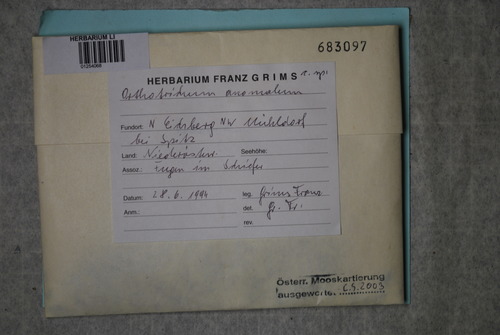 HERBARIUM LI
683097
HERBARIUM FRANZ GRIMS
Orthotrichum anomalum
Fundort: N Eitzberg NW Mühldorf
bei Spitz
Land: Niederösterr. Seehöhe:
Assoz.: Fugen im Schiefer
Datum: 28.6.1994 leg. Grims Franz
Anm.: det. Gr. Fr.
rev.
Österr. Mooskartierung
ausgewertet